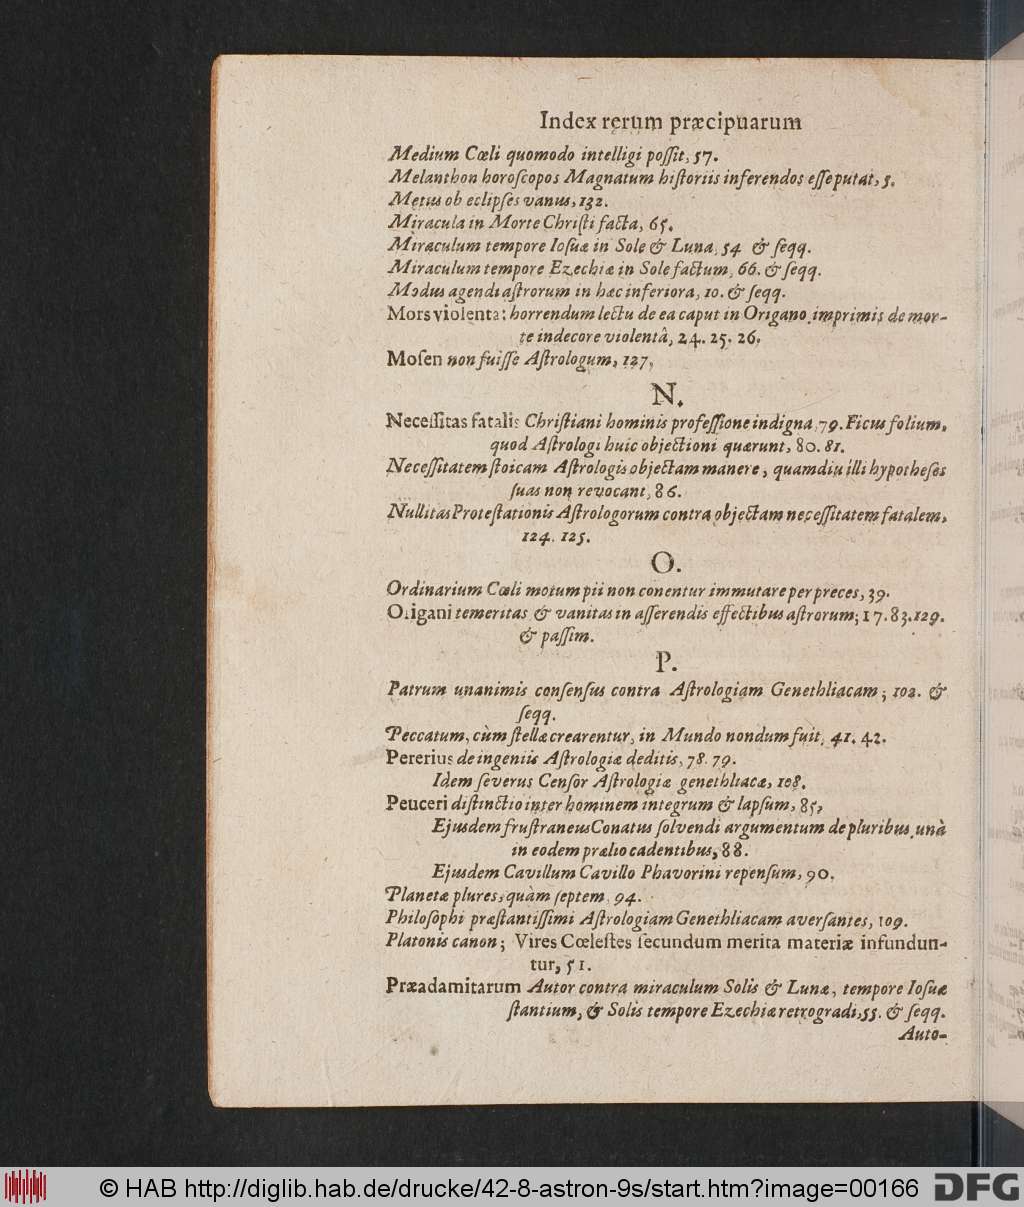 Index rerum præcipuarum
Medium Cœli quomodo intelligi poſſit, 57.
Melanthon horoſcopos Magnatum hiſtoriis inferendos eſſe putat, 5.
Metus ob eclipſes vanus, 132.
Miracula in Morte Chriſti facta, 65.
Miraculum tempore Ioſuæ in Sole & Luna, 54 & ſeqq.
Miraculum tempore Ezechiæ in Sole factum, 66. & ſeqq.
Modus agendi aſtrorum in hæc inferiora, 10. & ſeqq.
Mors violenta: horrendum lectu de ea caput in Origano, imprimis de mor-
te indecore violentâ, 24. 25. 26.
Moſen non fuiſſe Aſtrologum, 127,
N.
Neceſſitas fatalis Chriſtiani hominis profeſſione indigna, 79. Ficus folium,
quod Aſtrologi huic objectioni quærunt, 80. 81.
Neceſſitatem ſtoicam Aſtrologis objectam manere, quamdiu illi hypotheſes
ſuas non revocant, 86.
Nullitas Proteſtationis Aſtrologorum contra objectam neceſſitatem fatalem,
124. 125.
O.
Ordinarium Cœli motum pii non conentur immutare per preces, 39.
Origani temeritas & vanitas in aſſerendis effectibus aſtrorum; 17. 83. 129.
& paſſim.
P.
Patrum unanimis conſenſus contra Aſtrologiam Genethliacam; 102. &
ſeqq.
Peccatum, cùm ſtellæ crearentur, in Mundo nondum fuit, 41. 42.
Pererius de ingeniis Aſtrologiæ deditis, 78. 79.
Idem ſeverus Cenſor Aſtrologiæ genethliacæ, 108.
Peuceri diſtinctio inter hominem integrum & lapſum, 85,
Ejusdem fruſtraneus Conatus ſolvendi argumentum de pluribus unà
in eodem prælio cadentibus, 88.
Ejusdem Cavillum Cavillo Phavorini repenſum, 90.
Planetæ plures, quàm ſeptem, 94.
Philoſophi præſtantiſſimi Aſtrologiam Genethliacam averſantes, 109.
Platonis canon; Vires Cœleſtes ſecundum merita materiæ infundun-
tur, 51.
Præadamitarum Autor contra miraculum Solis & Lunæ, tempore Ioſuæ
ſtantium, & Solis tempore Ezechiæ retrogradi, 55. & ſeqq.
Auto-
© HAB http://diglib.hab.de/drucke/42-8-astron-9s/start.htm?image=00166
DFG